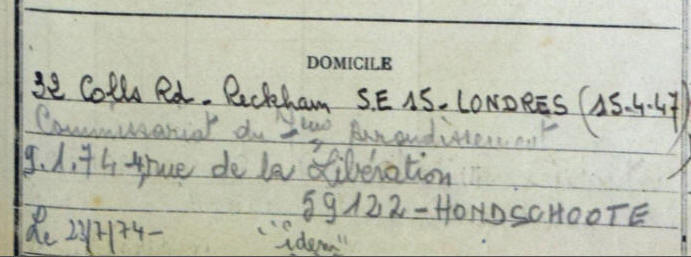 DOMICILE
32 Colls Rd - Peckham S.E 15 - LONDRES (15-4-47)
Commissariat du Arrondissement
9.1.74 - 4, rue de la Libération
59122 - HONDSCHOOTE
Le 23/7/74 - "idem"